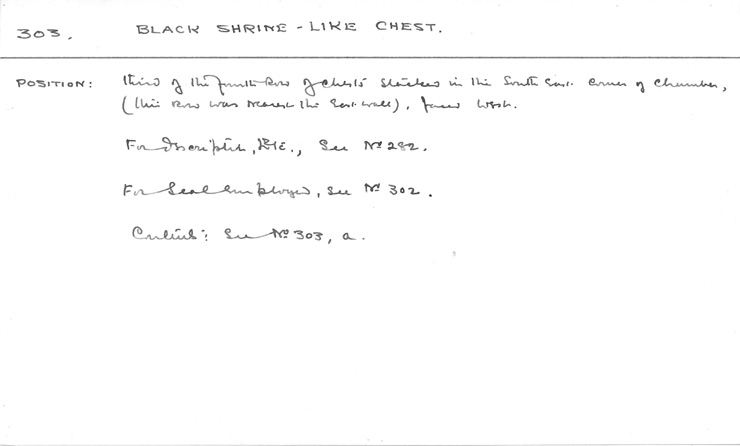 303. BLACK SHRINE-LIKE CHEST.
POSITION: Third of the fourth Row of chests stacked in the South East. corner of Chamber,
(this Row was nearest the East wall), faced West.
For Description, Etc., See Nº 282.
For Seal employed, see Nº 302.
Contents: See Nº 303, a.